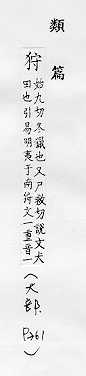 類篇
狩 始九切冬獵也又尸救切說文犬
田也引易明夷于南狩文一重音一
（犬部，P.361）